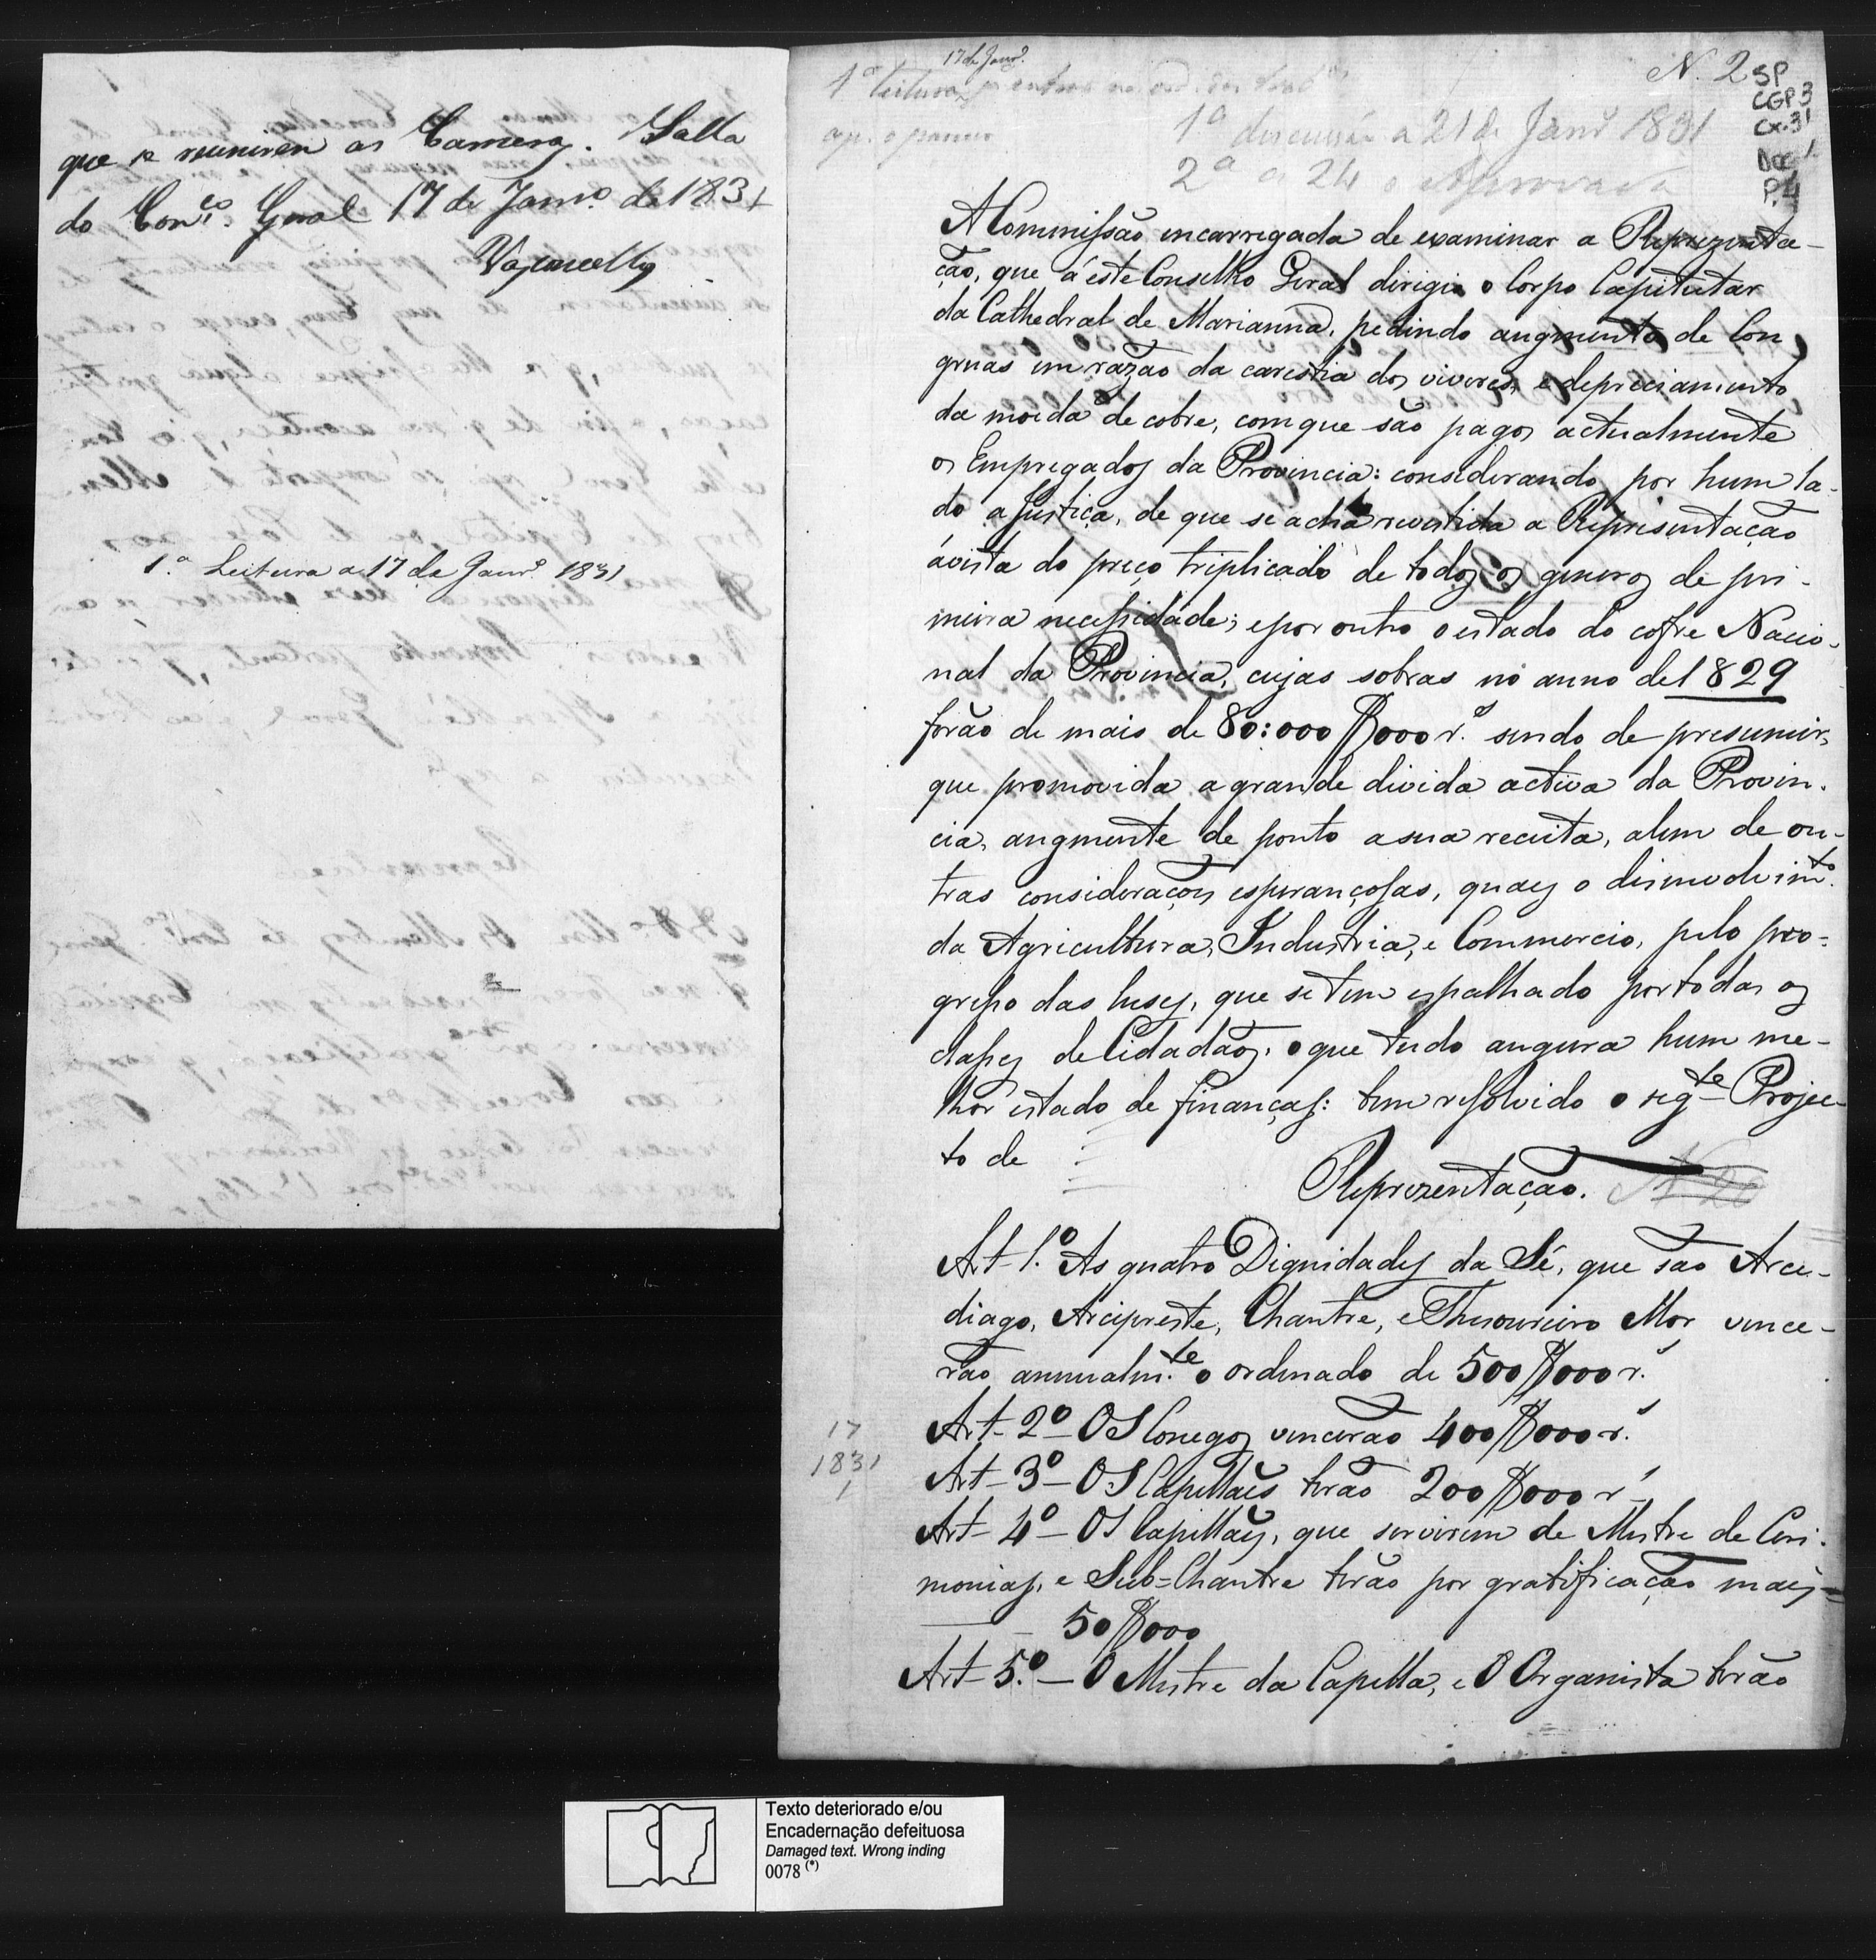 que se reunirem as Cameras. Salla
do Cons.º Geral 17 de Janrº. de 1831
Vasconcellos
1.ª Leitura a 17 de Janrº. 1831
17 de Janrº.
1ª leitura
ap. o parecer
N. 2
SP
CGP 3
Cx. 31
Doc 1
P. 4
1ª discussão a 21 de Janrº 1831
2ª a 24 e Approvada
A Commissão encarregada de examinar a Reprezenta-
ção, que á este Conselho Geral dirigio o Corpo Capitular
da Cathedral de Marianna, pedindo augmento de Con
gruas em razão da carestia dos viveres, e depreciamento
da moeda de cobre, com que são pagos actualmente
os Empregados da Provincia: considerando por hum la-
do a Justiça, de que se acha revestida a Representação
ávista do preço triplicado de todos os generos de pri-
meira necessidade; e por outro o estado do cofre Nacio-
nal da Provincia, cujas sobras no anno de 1829
forão de mais de 80:000$000 rˢ. sendo de presumir,
que promovida a grande divida activa da Provin-
cia, augmente de ponto a sua receita, alem de ou-
tras considerações esperançosas, quaes o desinvolvimᵗᵒ.
da Agricultura, Industria, e Commercio, pelo pro-
gresso das luses, que se tem espalhado por todas as
classes de Cidadãos, o que tudo augura hum me-
lhor estado de finanças: tem resolvido o segᵗᵉ Projec-
to de
Reprezentação.
Art. 1.º As quatro Dignidades da Sé, que são Arce-
diago, Arcipreste, Chantre, e Thesoureiro Mor vence-
rão annualmᵗᵉ. o ordenado de 500$000 rˢ.
Art. 2º - OS Conegos vencerão 400$000 rˢ.
Art. 3º - OS Capellães terão 200$000 rˢ
Art. 4º - OS Capellães, que servirem de Mestre de Ceri-
monias, e Sub=Chantre terão por gratificação mais=
50$000
Art. 5.º - O Mestre da Capella, e O Organista terão
17
1831
1
Texto deteriorado e/ou
Encadernação defeituosa
Damaged text. Wrong inding
0078 (*)